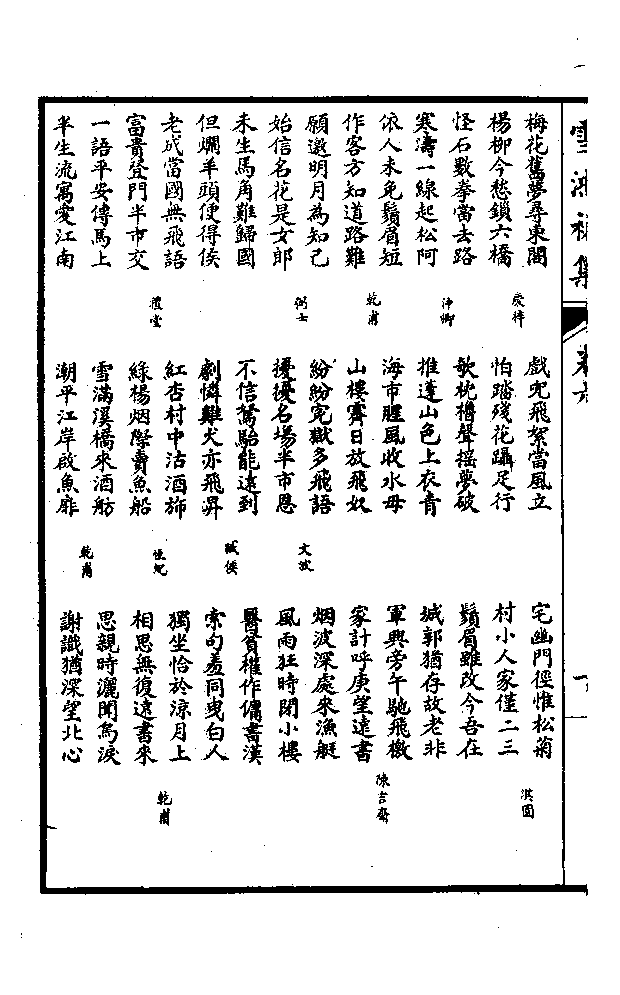 雪鴻初集
卷六
十
梅花舊夢尋東閣
楊柳今愁鎖六橋
愛梓
怪石數拳當去路
寒濤一線起松阿
沖卿
依人未免鬚眉短
作客方知道路難
乾甫
願邀明月為知己
始信名花是女郎
弼士
未生馬角難歸國
但爛羊頭便得侯
老成當國無飛語
富貴登門半市交
禮堂
一語平安傳馬上
半生流寓愛江南
戲兜飛絮當風立
怕踏殘花躡足行
欹枕櫓聲搖夢破
推蓬山色上衣青
海市腥風收水母
山樓霽日放飛奴
紛紛冤獄多飛語
擾擾名場半市恩
文波
不信駑駘能遠到
劇憐雞犬亦飛昇
臧侯
紅杏村中沽酒旆
綠楊烟際賣魚船
雪滿溪橋來酒舫
潮平江岸啟魚扉
乾甫
宅幽門徑惟松菊
村小人家僅二三
淇園
鬚眉雖改今吾在
城郭猶存故老非
軍興旁午馳飛檄
家計呼庚望遠書
陳吉齋
烟波深處來漁艇
風雨狂時閉小樓
醫貧權作傭書漢
索句羞同曳白人
獨坐恰於涼月上
相思無復遠書來
乾甫
思親時灑聞烏淚
謝識猶深望北心